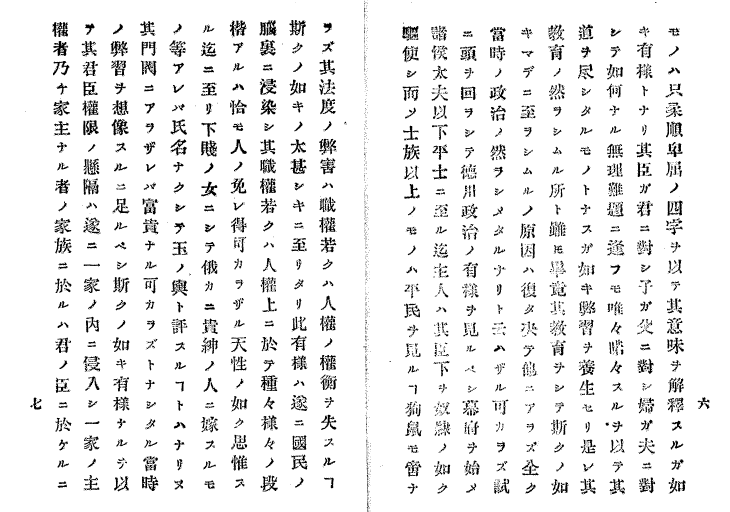 六
モノハ只柔順卑屈ノ四字ヲ以テ其意味ヲ解釋スルガ如
キ有様トナリ其臣ガ君ニ對シ子ガ父ニ對シ婦ガ夫ニ對
シテ如何ナル無理難題ニ逢フモ唯々諾々スルヲ以テ其
道ヲ尽シタルモノトナスガ如キ弊習ヲ養生セリ是レ其
教育ノ然ラシムル所ト雖モ畢竟其教育ヲシテ斯クノ如
キマデニ至ラシムルノ原因ハ復タ决テ他ニアラズ全ク
當時ノ政治ノ然ラシメタルナリト云ハザル可カラズ試
ニ頭ヲ回ラシテ德川政治ノ有様ヲ見ルベシ幕府ヲ始メ
諸侯太夫以下平士ニ至ル迄主人ハ其臣下ヲ奴隷ノ如ク
驅使シ而ノ士族以上ノモノハ平民ヲ見ルヿ狗鼠モ啻ナ
ラズ其法度ノ弊害ハ職權若クハ人權ノ權衡ヲ失スルヿ
斯クノ如キノ太甚シキニ至リタリ此有様ハ遂ニ國民ノ
腦裏ニ浸染シ其職權若クハ人權上ニ於テ種々様々ノ段
楷アルハ恰モ人ノ免レ得可カラザル天性ノ如ク思惟ス
ル迄ニ至リ下賤ノ女ニシテ俄カニ貴紳ノ人ニ嫁スルモ
ノ等アレバ氏名ナクシテ玉ノ輿ト評スルヿトハナリヌ
其門閥ニアラザレバ富貴ナル可カラズトナシタル當時
ノ弊習ヲ想像スルニ足ルベシ斯クノ如キ有様ナルヲ以
テ其君臣權限ノ懸隔ハ遂ニ一家ノ內ニ侵入シ一家ノ主
權者乃チ家主ナル者ノ家族ニ於ルハ君ノ臣ニ於ケルニ
七